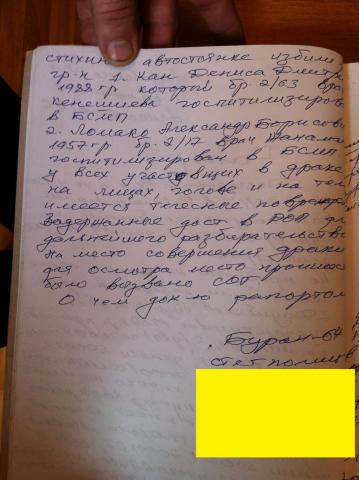 стихийной автостоянке избили
гр-н 1. Кан Дениса Дмитр
1988 гр. которой бр 2/63 врач
Кенешиева госпитилизирова
в БСМП
2. Ломако Александр Борисови
1957 гр. бр. 2/17 врач
госпитилизирован в БСМП
у всех участвующих в драке
на лицах, голове и на тел
имеется телесные поврежд
Задержанные дост в РОП дл
дальнейшого разбирательство
На место совершения драки
для осмотра место происшес
было вызвано СОГ
О чем док-ю рапортом
Буран-64